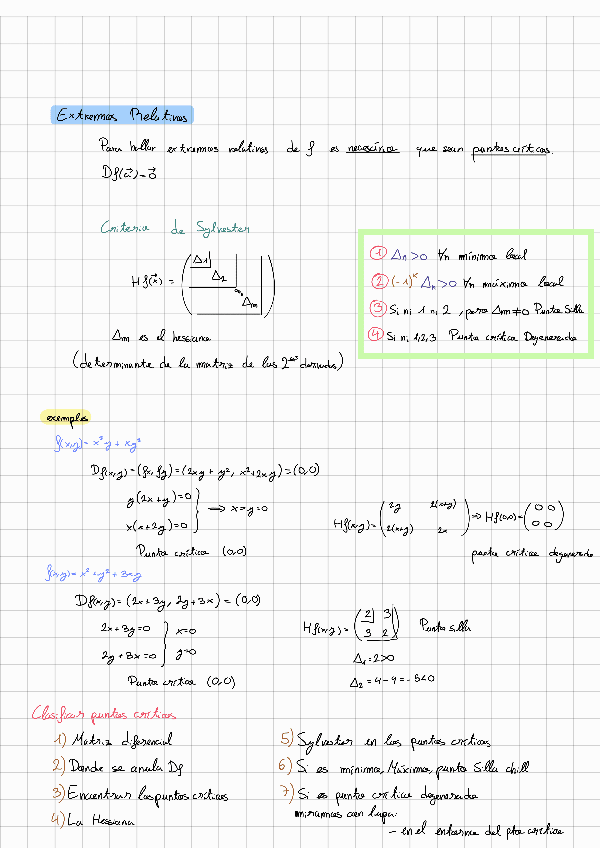 Extremos Relativos
Para hallar extremos relativos de f es necesario que sean puntos críticos.
Df(a⃗)=0⃗
Criterio de Sylvester
Hf(x⃗) = ( Δ1 Δ2 Δm )
Δm es el hessiano
(determinante de la matriz de las 2das derivadas)
1 Δn>0 ∀n mínimo local
2 (-1)^k Δn>0 ∀n máximo local
3 Si ni 1 ni 2, pero Δm≠0 Punto Silla
4 Si ni 1,2,3 Punto crítico Degenerado
exemplo
f(x,y)= x²y + xy²
Df(x,y)=(fx, fy)=(2xy + y², x²+2xy)=(0,0)
y(2x+y)=0
x(x+2y)=0
→ x=y=0
Punto crítico (0,0)
Hf(x,y)= ( 2y 2(x+y) 2(x+y) 2x ) ⇒ Hf(0,0)= ( 0 0 0 0 )
punto crítico degenerado
f(x,y)= x² + y² + 3xy
Df(x,y)=(2x+3y, 2y+3x)=(0,0)
2x+3y=0 x=0
2y+3x=0 y=0
Punto crítico (0,0)
Hf(x,y)= ( 2 3 3 2 ) Punto silla
Δ1=2>0
Δ2=4-9=-5<0
Clasificar puntos críticos
1) Matriz diferencial
2) Donde se anula Df
3) Encuentrar los puntos críticos
4) La Hessiana
5) Sylvester en los puntos críticos
6) Si es mínimo, Máximo, punto Silla chill
7) Si es punto crítico degenerado
miramos con lupa:
- en el entorno del pto crítico